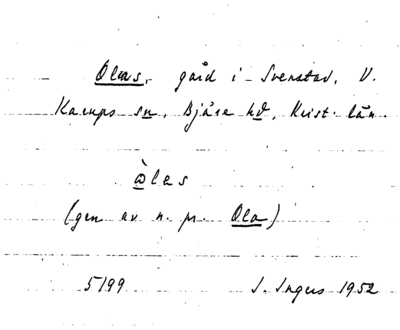 Olas, gård i Svenstad, V.
Karups sn, Bjäre hd, Krist. län.
òlas
(gen av n. pr. Ola)
5199 I. Ingers 1952